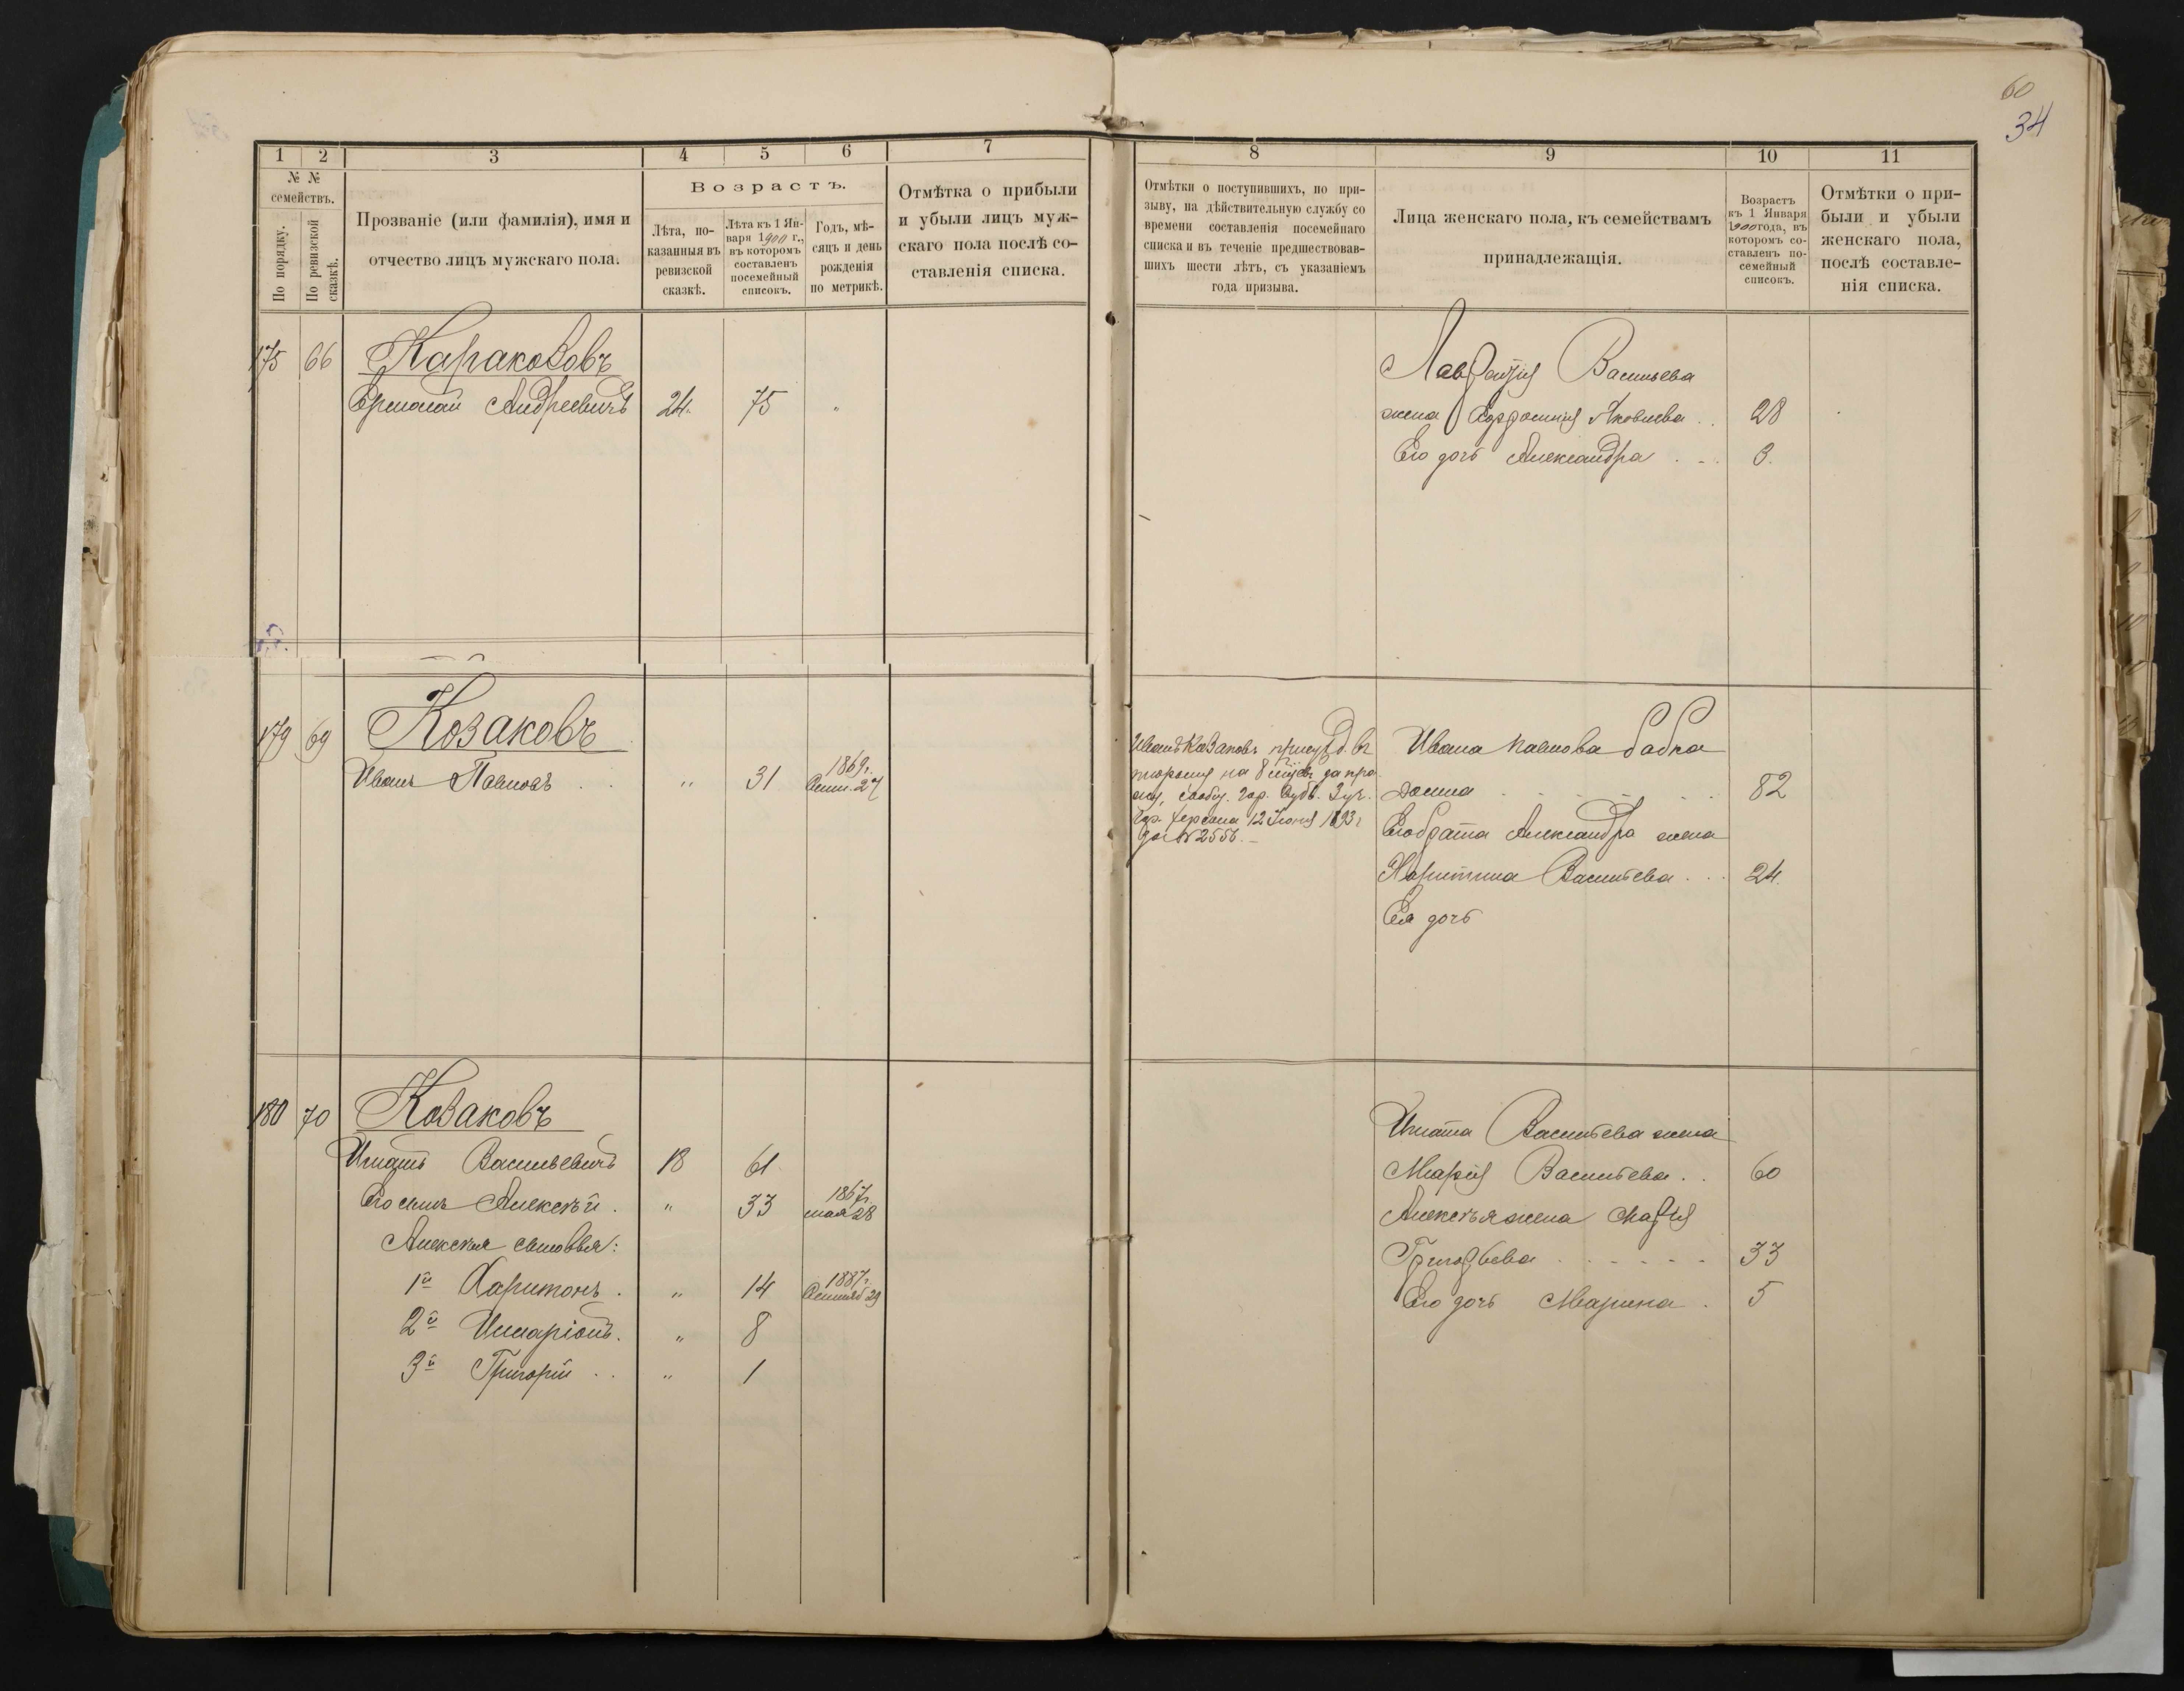 60
34
1 2 3 4 5 6 7
№ № семействъ.
По порядку.
По ревизской сказкѣ.
Прозваніе (или фамилія), имя и
отчество лицъ мужскаго пола.
Возрастъ.
Лѣта, по-
казанныя въ
ревизской
сказкѣ.
Лѣта къ 1 Ян-
варя 1900 г.,
въ которомъ
составленъ
посемейный
списокъ.
Годъ, мѣ-
сяцъ и день
рожденія
по метрикѣ.
Отмѣтка о прибыли
и убыли лицъ муж-
скаго пола послѣ со-
ставленія списка.
175 66 Каракововъ
Ермолай Андреевичъ 24. 75 "
179 69 Козаковъ
Иванъ Павловъ . . " 31 1869г. 27
180 70 Козаковъ
Игнатъ Васильевичъ 18 61
Его сынъ Алексѣй . " 33 1867г. мая 28
Алексѣя сыновья:
1й Харитонъ . " 14 1887г. 29
2й Иларіонъ. " 8
3й Григорій . . " 1
8 9 10 11
Отмѣтки о поступившихъ, по при-
зыву, на дѣйствительную службу со
времени составленія посемейнаго
списка и въ теченіе предшествовав-
шихъ шести лѣтъ, съ указаніемъ
года призыва.
Лица женскаго пола, къ семействамъ
принадлежащія.
Возрастъ
къ 1 Января
1900 года, въ
которомъ со-
ставленъ по-
семейный
списокъ.
Отмѣтки о при-
были и убыли
женскаго пола,
послѣ составле-
нія списка.
Васильева
жена Яковлева . . 28
Его дочь Александра . . . 3.
Иванъ Козаковъ въ
на 8
Гор. Херсона 12 Іюня 1893г
№ 2556.
Ивана Павлова бабка
82
Его брата Александра жена
Харитина Васильева . . . 24.
Ея дочь
Игната Васильева жена
Марія Васильева . . 60
Алексѣя жена Марія
Григорьева . . . . . . 33
Его дочь Марина . 5